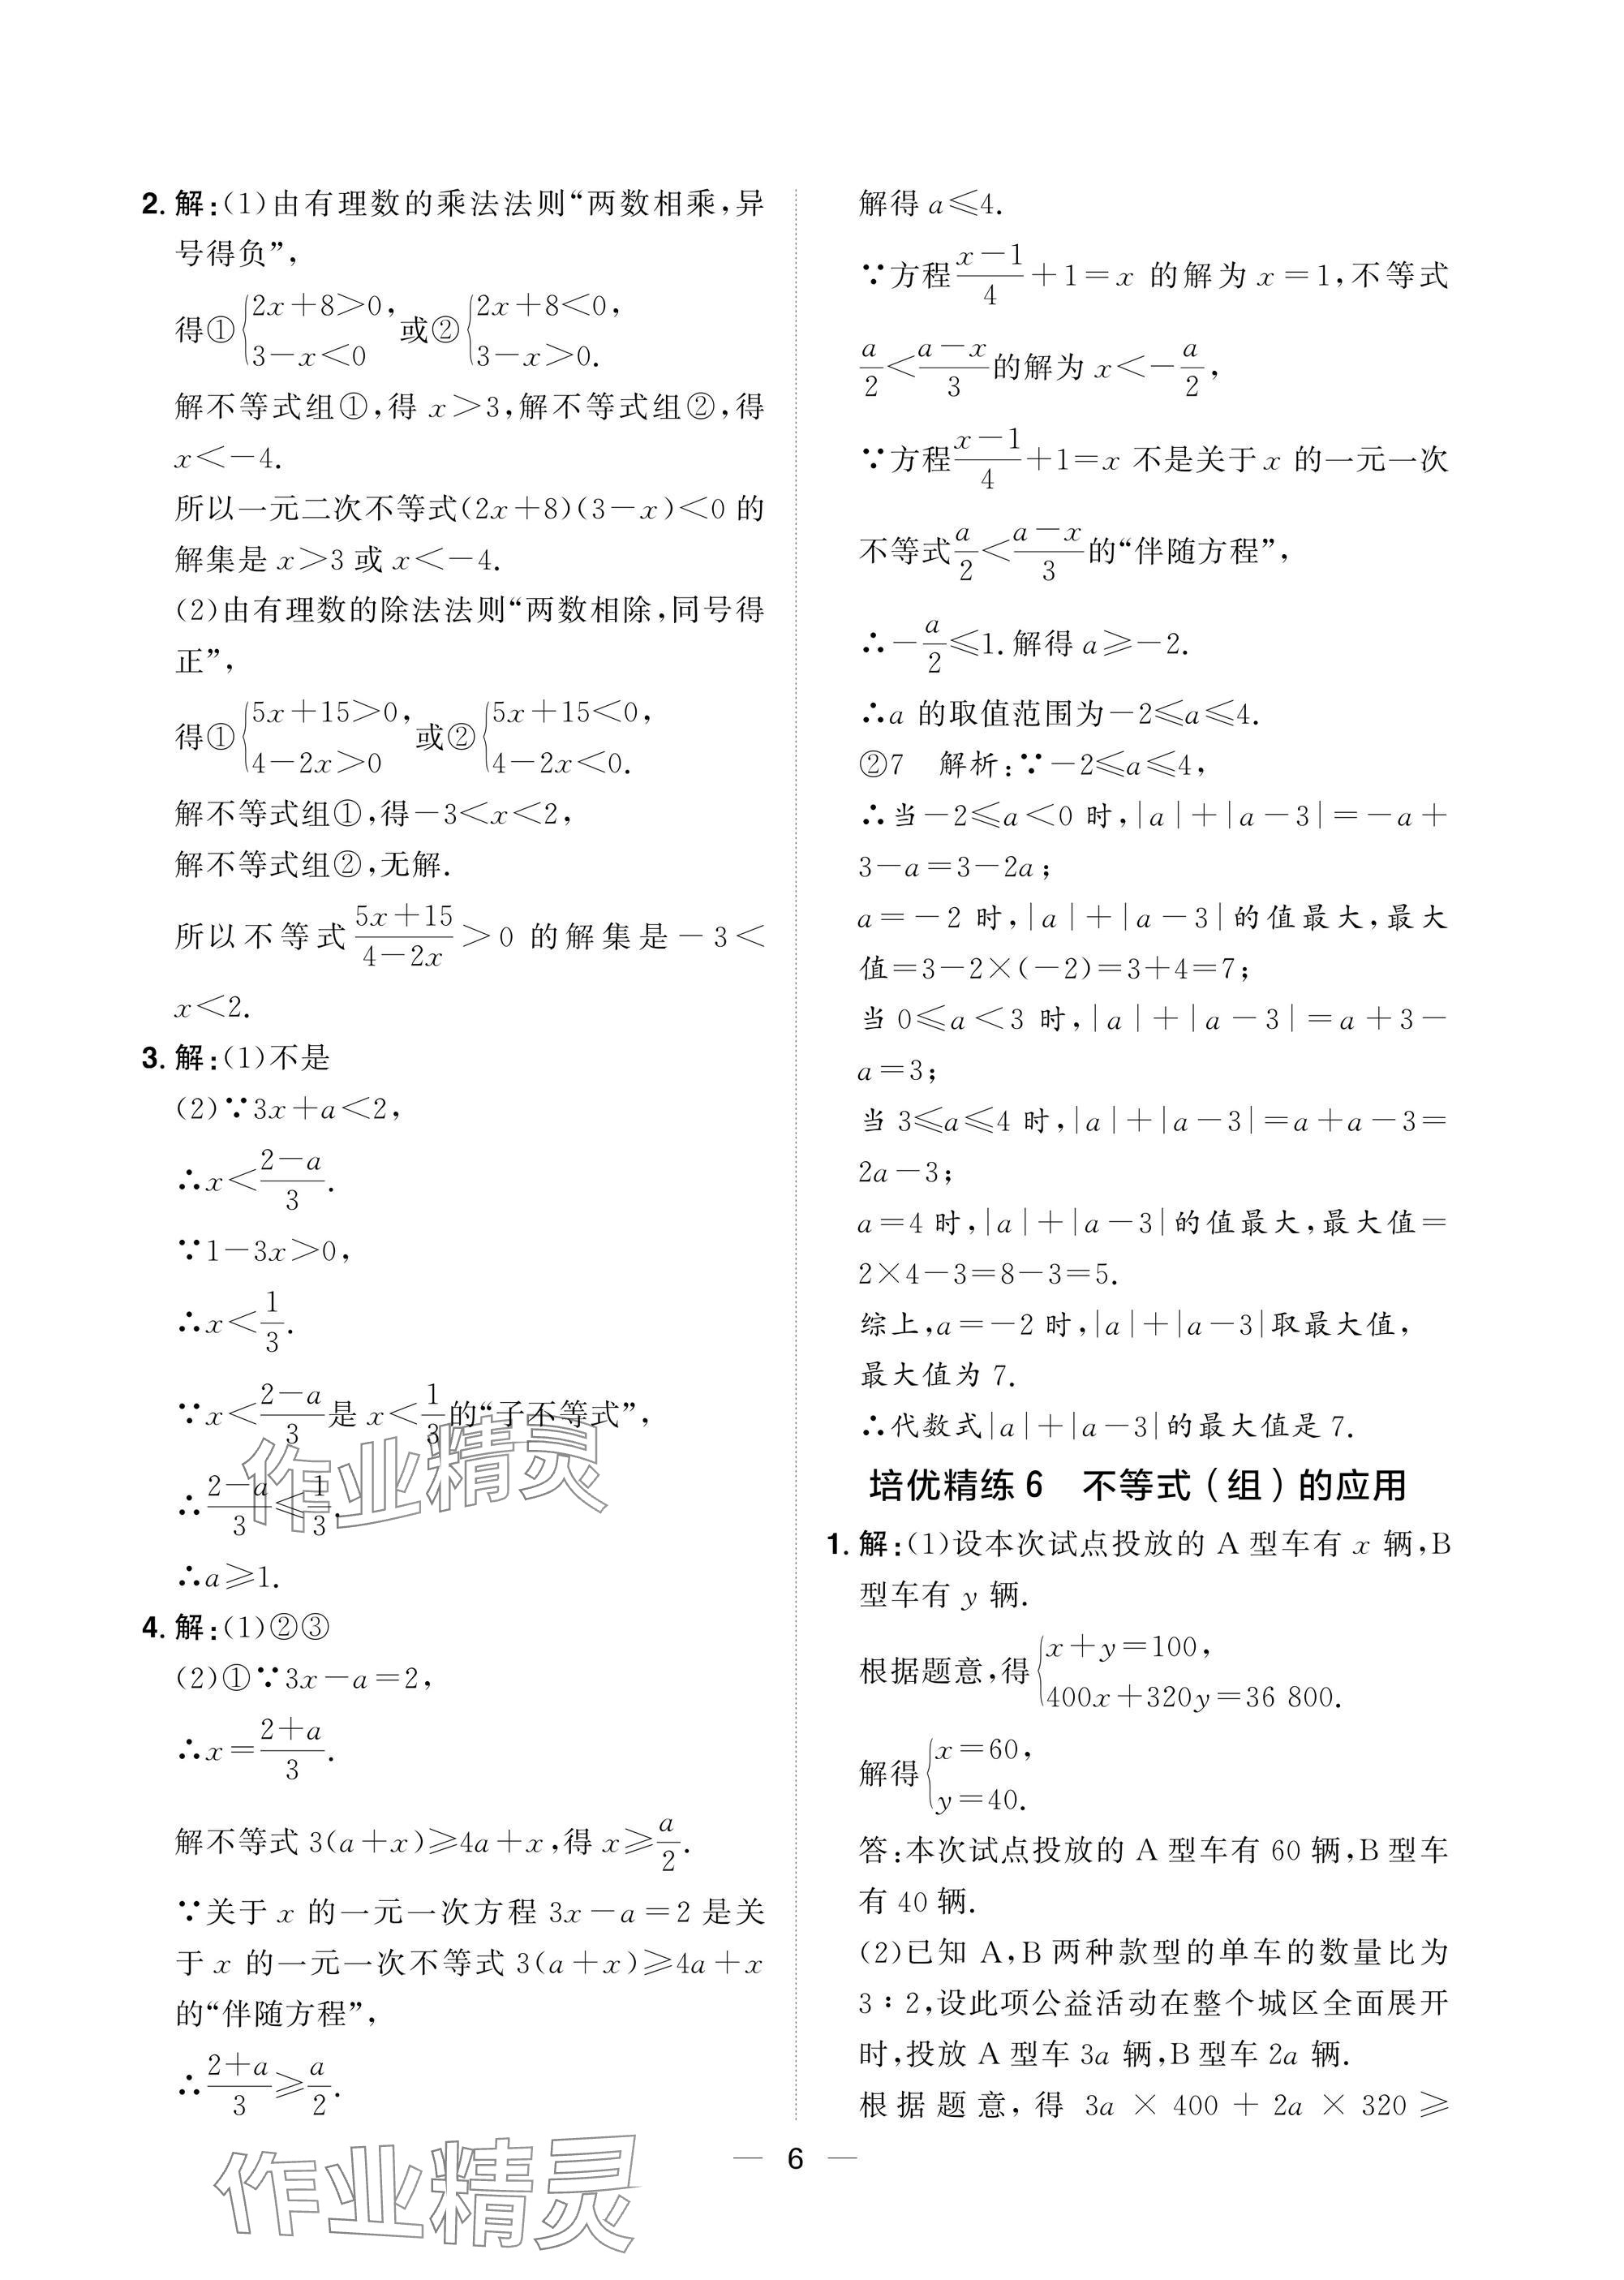 2. 解:(1)由有理数的乘法法则“两数相乘,异
号得负”,
得①{2x+8>0, 3-x<0 或②{2x+8<0, 3-x>0.
解不等式组①,得 x>3,解不等式组②,得
x<-4.
所以一元二次不等式(2x+8)(3-x)<0 的
解集是 x>3 或 x<-4.
(2)由有理数的除法法则“两数相除,同号得
正”,
得①{5x+15>0, 4-2x>0 或②{5x+15<0, 4-2x<0.
解不等式组①,得-3<x<2,
解不等式组②,无解.
所以不等式 (5x+15)/(4-2x) >0 的解集是-3<
x<2.
3. 解:(1)不是
(2)∵3x+a<2,
∴x<(2-a)/3.
∵1-3x>0,
∴x<1/3.
∵x<(2-a)/3是 x<1/3的“子不等式”,
∴(2-a)/3≤1/3.
∴a≥1.
4. 解:(1)②③
(2)①∵3x-a=2,
∴x=(2+a)/3.
解不等式 3(a+x)≥4a+x,得 x≥a/2.
∵关于 x 的一元一次方程 3x-a=2 是关
于 x 的一元一次不等式 3(a+x)≥4a+x
的“伴随方程”,
∴(2+a)/3≥a/2.
解得 a≤4.
∵方程(x-1)/4+1=x 的解为 x=1,不等式
a/2<(a-x)/3的解为 x<-a/2,
∵方程(x-1)/4+1=x 不是关于 x 的一元一次
不等式a/2<(a-x)/3的“伴随方程”,
∴-a/2≤1.解得 a≥-2.
∴a 的取值范围为-2≤a≤4.
②7 解析:∵-2≤a≤4,
∴当-2≤a<0 时,|a|+|a-3|=-a+
3-a=3-2a;
a=-2 时,|a|+|a-3|的值最大,最大
值=3-2×(-2)=3+4=7;
当 0≤a<3 时,|a|+|a-3|=a+3-
a=3;
当 3≤a≤4 时,|a|+|a-3|=a+a-3=
2a-3;
a=4 时,|a|+|a-3|的值最大,最大值=
2×4-3=8-3=5.
综上,a=-2 时,|a|+|a-3|取最大值,
最大值为 7.
∴代数式|a|+|a-3|的最大值是 7.
培优精练 6 不等式(组)的应用
1. 解:(1)设本次试点投放的 A 型车有 x 辆,B
型车有 y 辆.
根据题意,得{x+y=100, 400x+320y=36 800.
解得{x=60, y=40.
答:本次试点投放的 A 型车有 60 辆,B 型车
有 40 辆.
(2)已知 A,B 两种款型的单车的数量比为
3∶2,设此项公益活动在整个城区全面展开
时,投放 A 型车 3a 辆,B 型车 2a 辆.
根据题意,得 3a×400+2a×320≥
— 6 —
作业精灵
作业精灵